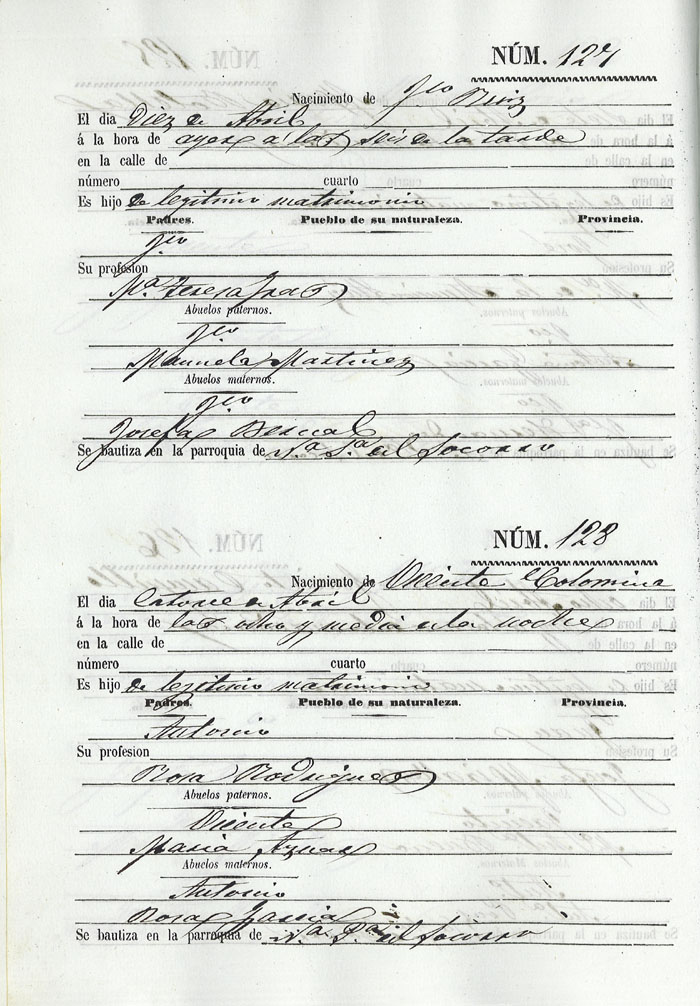 NÚM. 127
Nacimiento de Fco Ruiz
El dia Diez de Abril
á la hora de ayer á las seis de la tarde
en la calle de
número cuarto
Es hijo de legitimo matrimonio
Padres. Pueblo de su naturaleza. Provincia.
Fco
Su profesion
Ma. Teresa
Abuelos paternos.
Fco
Manuela Martinez
Abuelos maternos.
Fco
Josefa Bernal
Se bautiza en la parroquia de Na. Sa. del Socorro
NÚM. 128
Nacimiento de Vicente Colomina
El dia Catorce de Abril
á la hora de las ocho y media de la noche
en la calle de
número cuarto
Es hijo de legitimo matrimonio
Padres. Pueblo de su naturaleza. Provincia.
Antonio
Su profesion
Rosa Rodriguez
Abuelos paternos.
Vicente
Maria Aznar
Abuelos maternos.
Antonio
Rosa Garcia
Se bautiza en la parroquia de Na. Sa. del Socorro